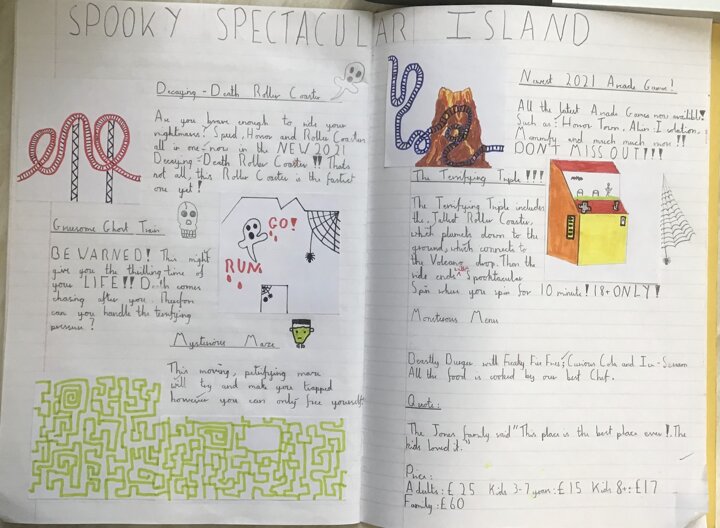 SPOOKY SPECTACULAR ISLAND
Decaying-Death Roller Coaster
Are you brave enough to ride your
nightmares? Speed, Horror and Roller Coaster
all in one, now in the NEW 2021
Decaying-Death Roller Coaster!! Thats
not all, this Roller Coaster is the fastest
one yet!
Gruesome Ghost Train
BE WARNED! This might
give you the thrilling-time of
your LIFE!! Death comes
chasing after you. Therefore
can you handle the terrifying
pressure?
GO!
RUN
Mysterious Maze
This moving, petrifying maze
will try and make you trapped
however you can only free yourself!
Newest 2021 Arcade Games!
All the latest Arcade Games now available!
Such as: Horror Town, Alien: Isolation,
Mummify and much much more!!
DON'T MISS OUT!!!
The Terrifying Triple!!!
The Terrifying Triple includes
the Tallest Roller Coaster,
which plumets down to the
ground, which connects to
the Volcano drop. Then the
ride ends with Spooktacular
Spin where you spin for 10 minute! 18+ ONLY!
Monsterous Menu
Beastly Burger with Freaky Fire Fries, Curious Cola and Ice-Scream
All the food is cooked by our best Chef.
Quote:
The Jones family said "This place is the best place ever! The
kids loved it."
Prices:
Adults: £25 Kids 3-7 years: £15 Kids 8+: £17
Family: £60